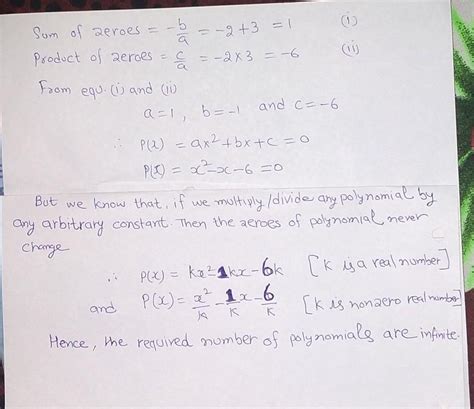 Sum of zeroes = -b/a = -2+3 = 1 (i)
Product of zeroes = c/a = -2×3 = -6 (ii)
From equ. (i) and (ii)
a=1, b=-1 and c=-6
∴ P(x) = ax²+bx+c=0
P(x) = x²-x-6=0
But we know that, if we multiply/divide any polynomial by
any arbitrary constant. Then the zeroes of polynomial never
change
∴ P(x) = kx²-1kx-6k [K is a real number]
and P(x) = x²/K - 1/K x - 6/K [K is nonzero real number]
Hence, the required number of polynomials are infinite.